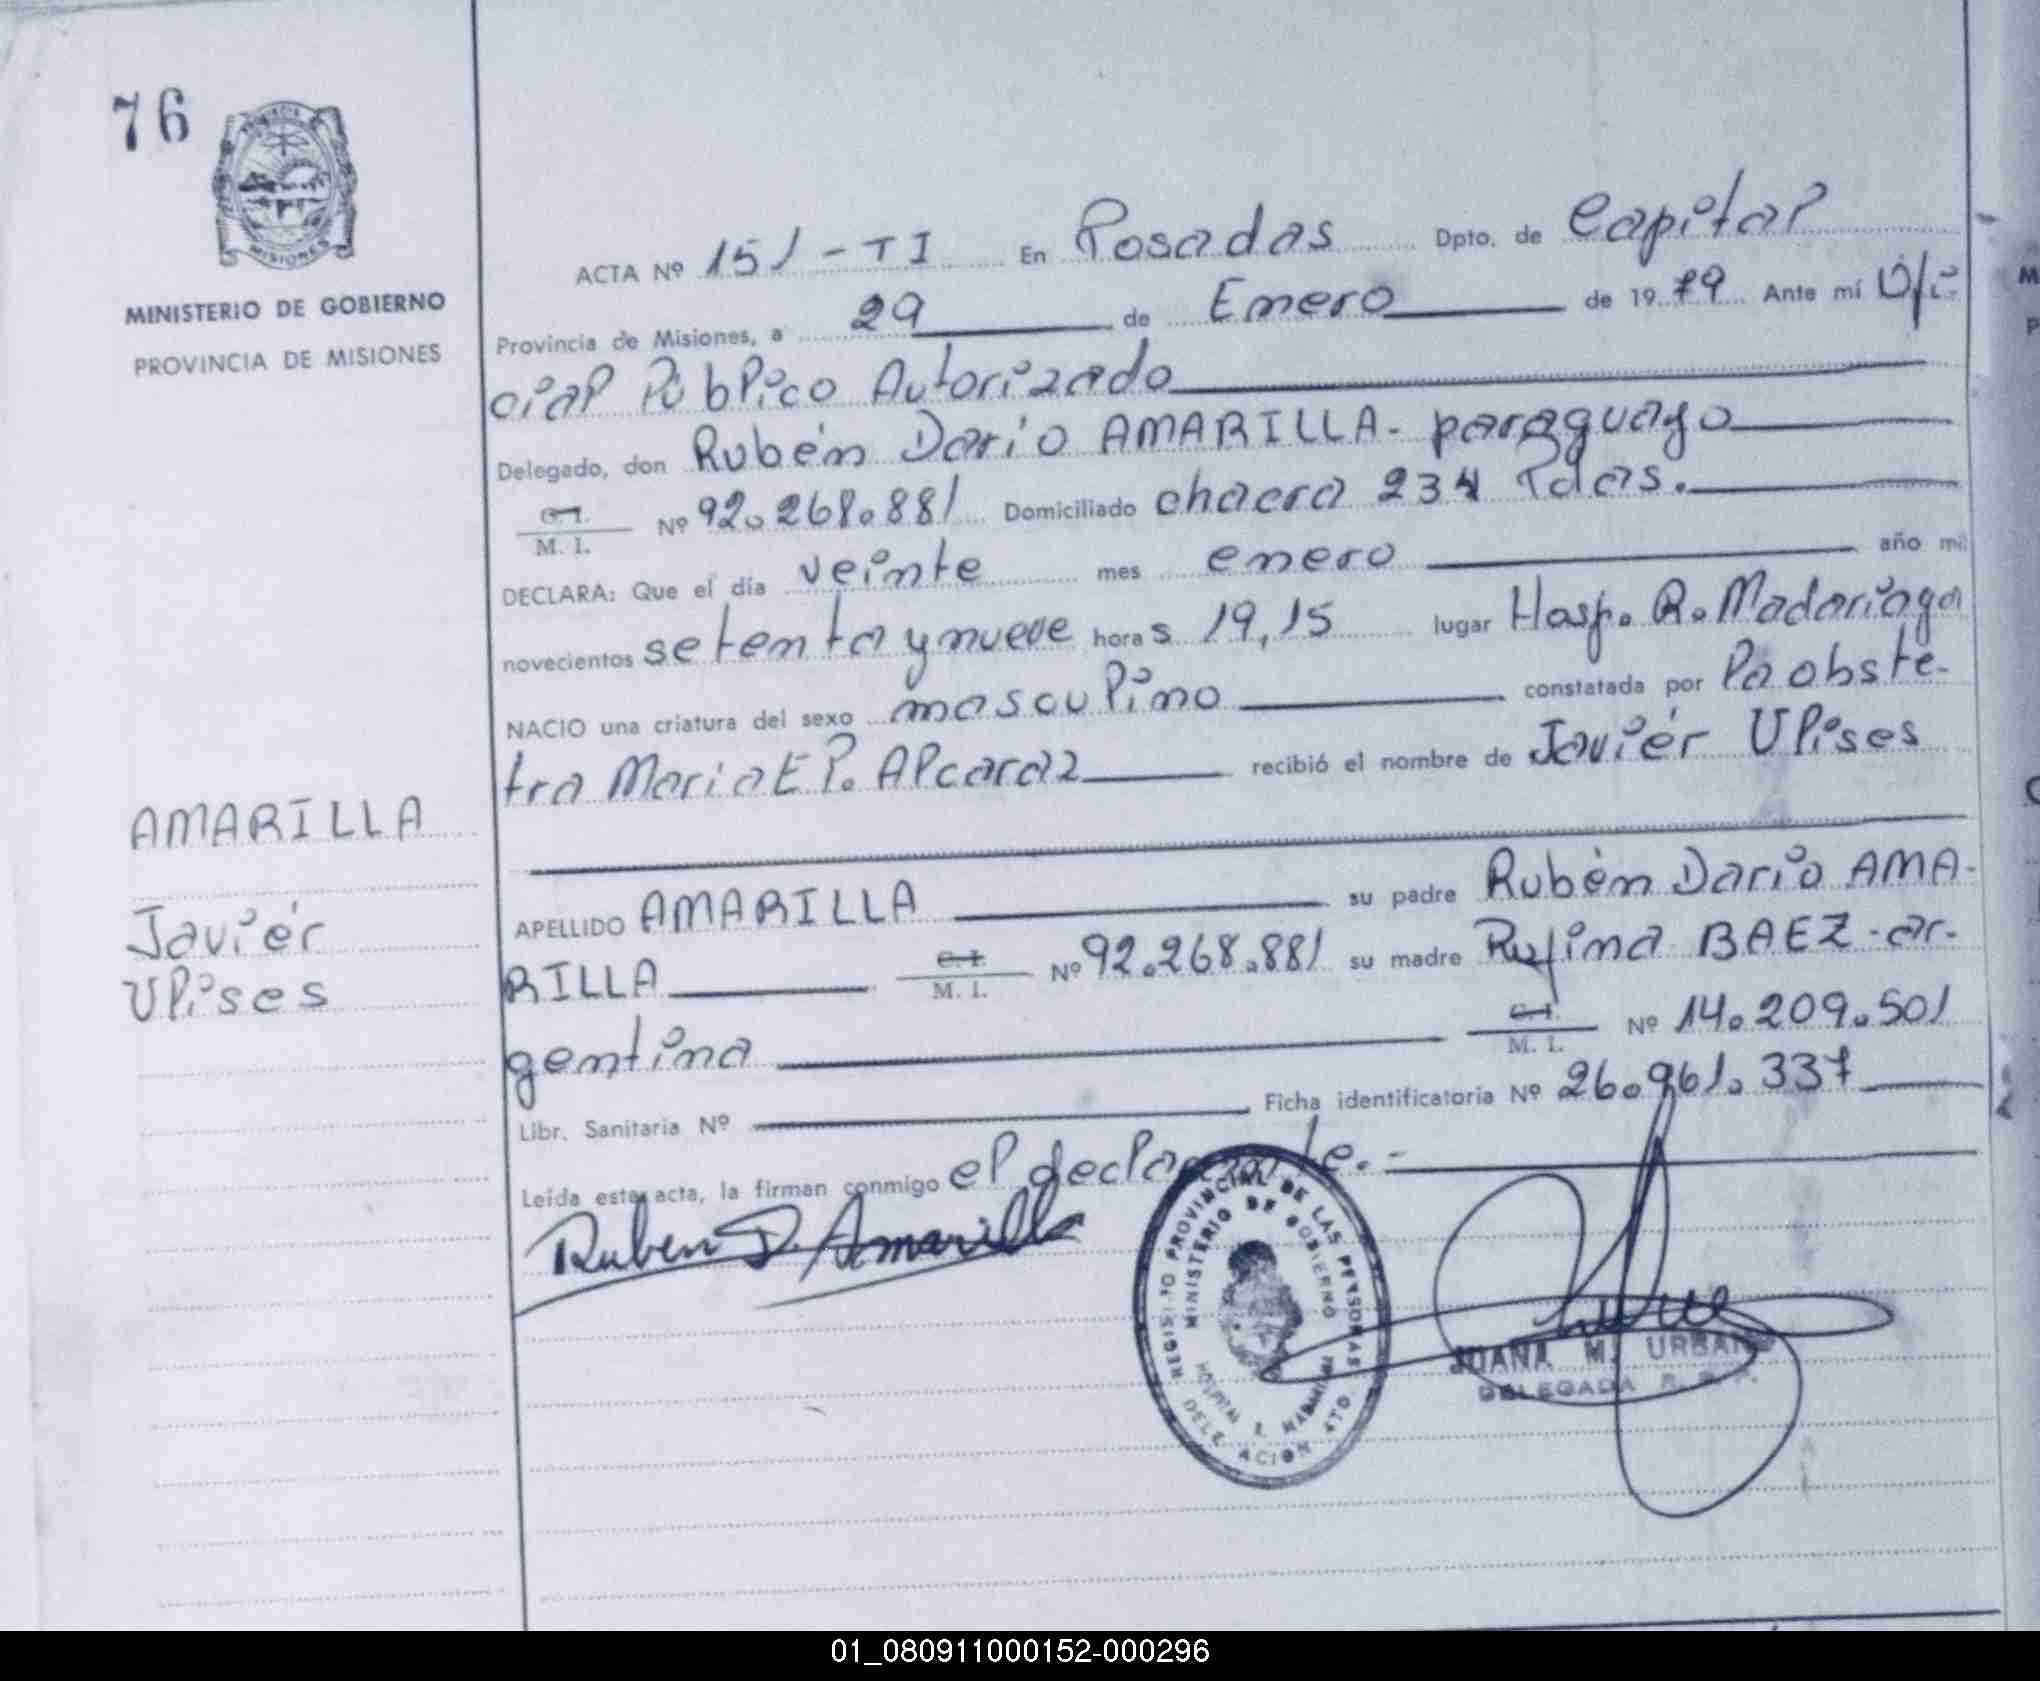 76
PROVINCIA
MISIONES
MINISTERIO DE GOBIERNO
PROVINCIA DE MISIONES
ACTA Nº 151-TI En Posadas Dpto. de Capital
Provincia de Misiones, a 29 de Enero de 1979 Ante mí Ofi-
cial Público Autorizado
Delegado, don Rubén Dario AMARILLA- paraguayo
C. I.
M. I. Nº 92.268.881 Domiciliado chacra 234 Pdas.
DECLARA: Que el día veinte mes enero año mil
novecientos setenta y nueve horas 19,15 lugar Hosp. R. Madariaga
NACIO una criatura del sexo masculino constatada por la obste-
tra Maria E P. Alcaraz recibió el nombre de Javiér Ulises
AMARILLA
Javiér
Ulises
APELLIDO AMARILLA su padre Rubén Dario AMA-
RILLA C. I. M. I. Nº 92.268.881 su madre Rufina BAEZ - ar-
gentina C. I. M. I. Nº 14.209.501
Libr. Sanitaria Nº Ficha identificatoria Nº 26.961.337
Leída esta acta, la firman conmigo el declarante.-
Ruben D. Amarilla
REGISTRO PROVINCIAL DE LAS PERSONAS
MINISTERIO DE GOBIERNO
HOSPITAL R. MADARIAGA
DELEGACION
JUANA M. URBANO
DELEGADA R. P. P.
01_080911000152-000296